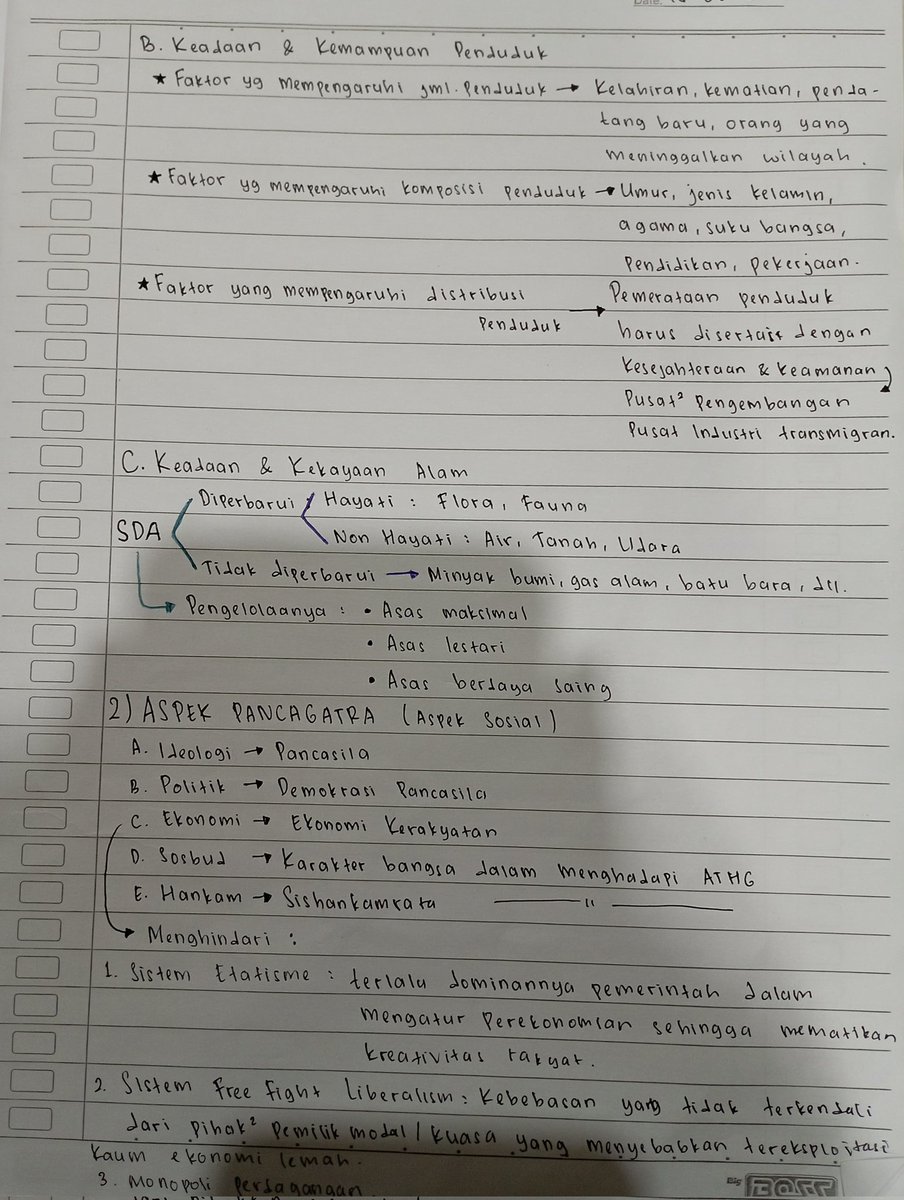 Date:
B. Keadaan & Kemampuan Penduduk
★ Faktor yg mempengaruhi jml. penduduk → Kelahiran, kematian, penda-
tang baru, orang yang
meninggalkan wilayah.
★ Faktor yg mempengaruhi komposisi penduduk → Umur, jenis kelamin,
agama, suku bangsa,
Pendidikan, pekerjaan.
★ Faktor yang mempengaruhi distribusi
penduduk → Pemerataan penduduk
harus disertai dengan
kesejahteraan & keamanan
Pusat² pengembangan
Pusat Industri transmigran.
C. Keadaan & Kekayaan Alam
SDA
Diperbarui
Hayati : Flora, Fauna
Non Hayati : Air, Tanah, Udara
Tidak diperbarui → Minyak bumi, gas alam, batu bara, dll.
Pengelolaanya : • Asas maksimal
• Asas lestari
• Asas berdaya saing
2) ASPEK PANCAGATRA (Aspek Sosial)
A. Ideologi → Pancasila
B. Politik → Demokrasi Pancasila
C. Ekonomi → Ekonomi Kerakyatan
D. Sosbud → Karakter bangsa dalam menghadapi ATHG
E. Hankam → Sishankamrata —— " ——
Menghindari :
1. Sistem Etatisme : terlalu dominannya pemerintah dalam
mengatur perekonomian sehingga mematikan
kreativitas rakyat.
2. Sistem Free Fight Liberalism : Kebebasan yang tidak terkendali
dari pihak² pemilik modal / kuasa yang menyebabkan tereksploitasi
kaum ekonomi lemah.
3. Monopoli perdagangan
Big BOSS